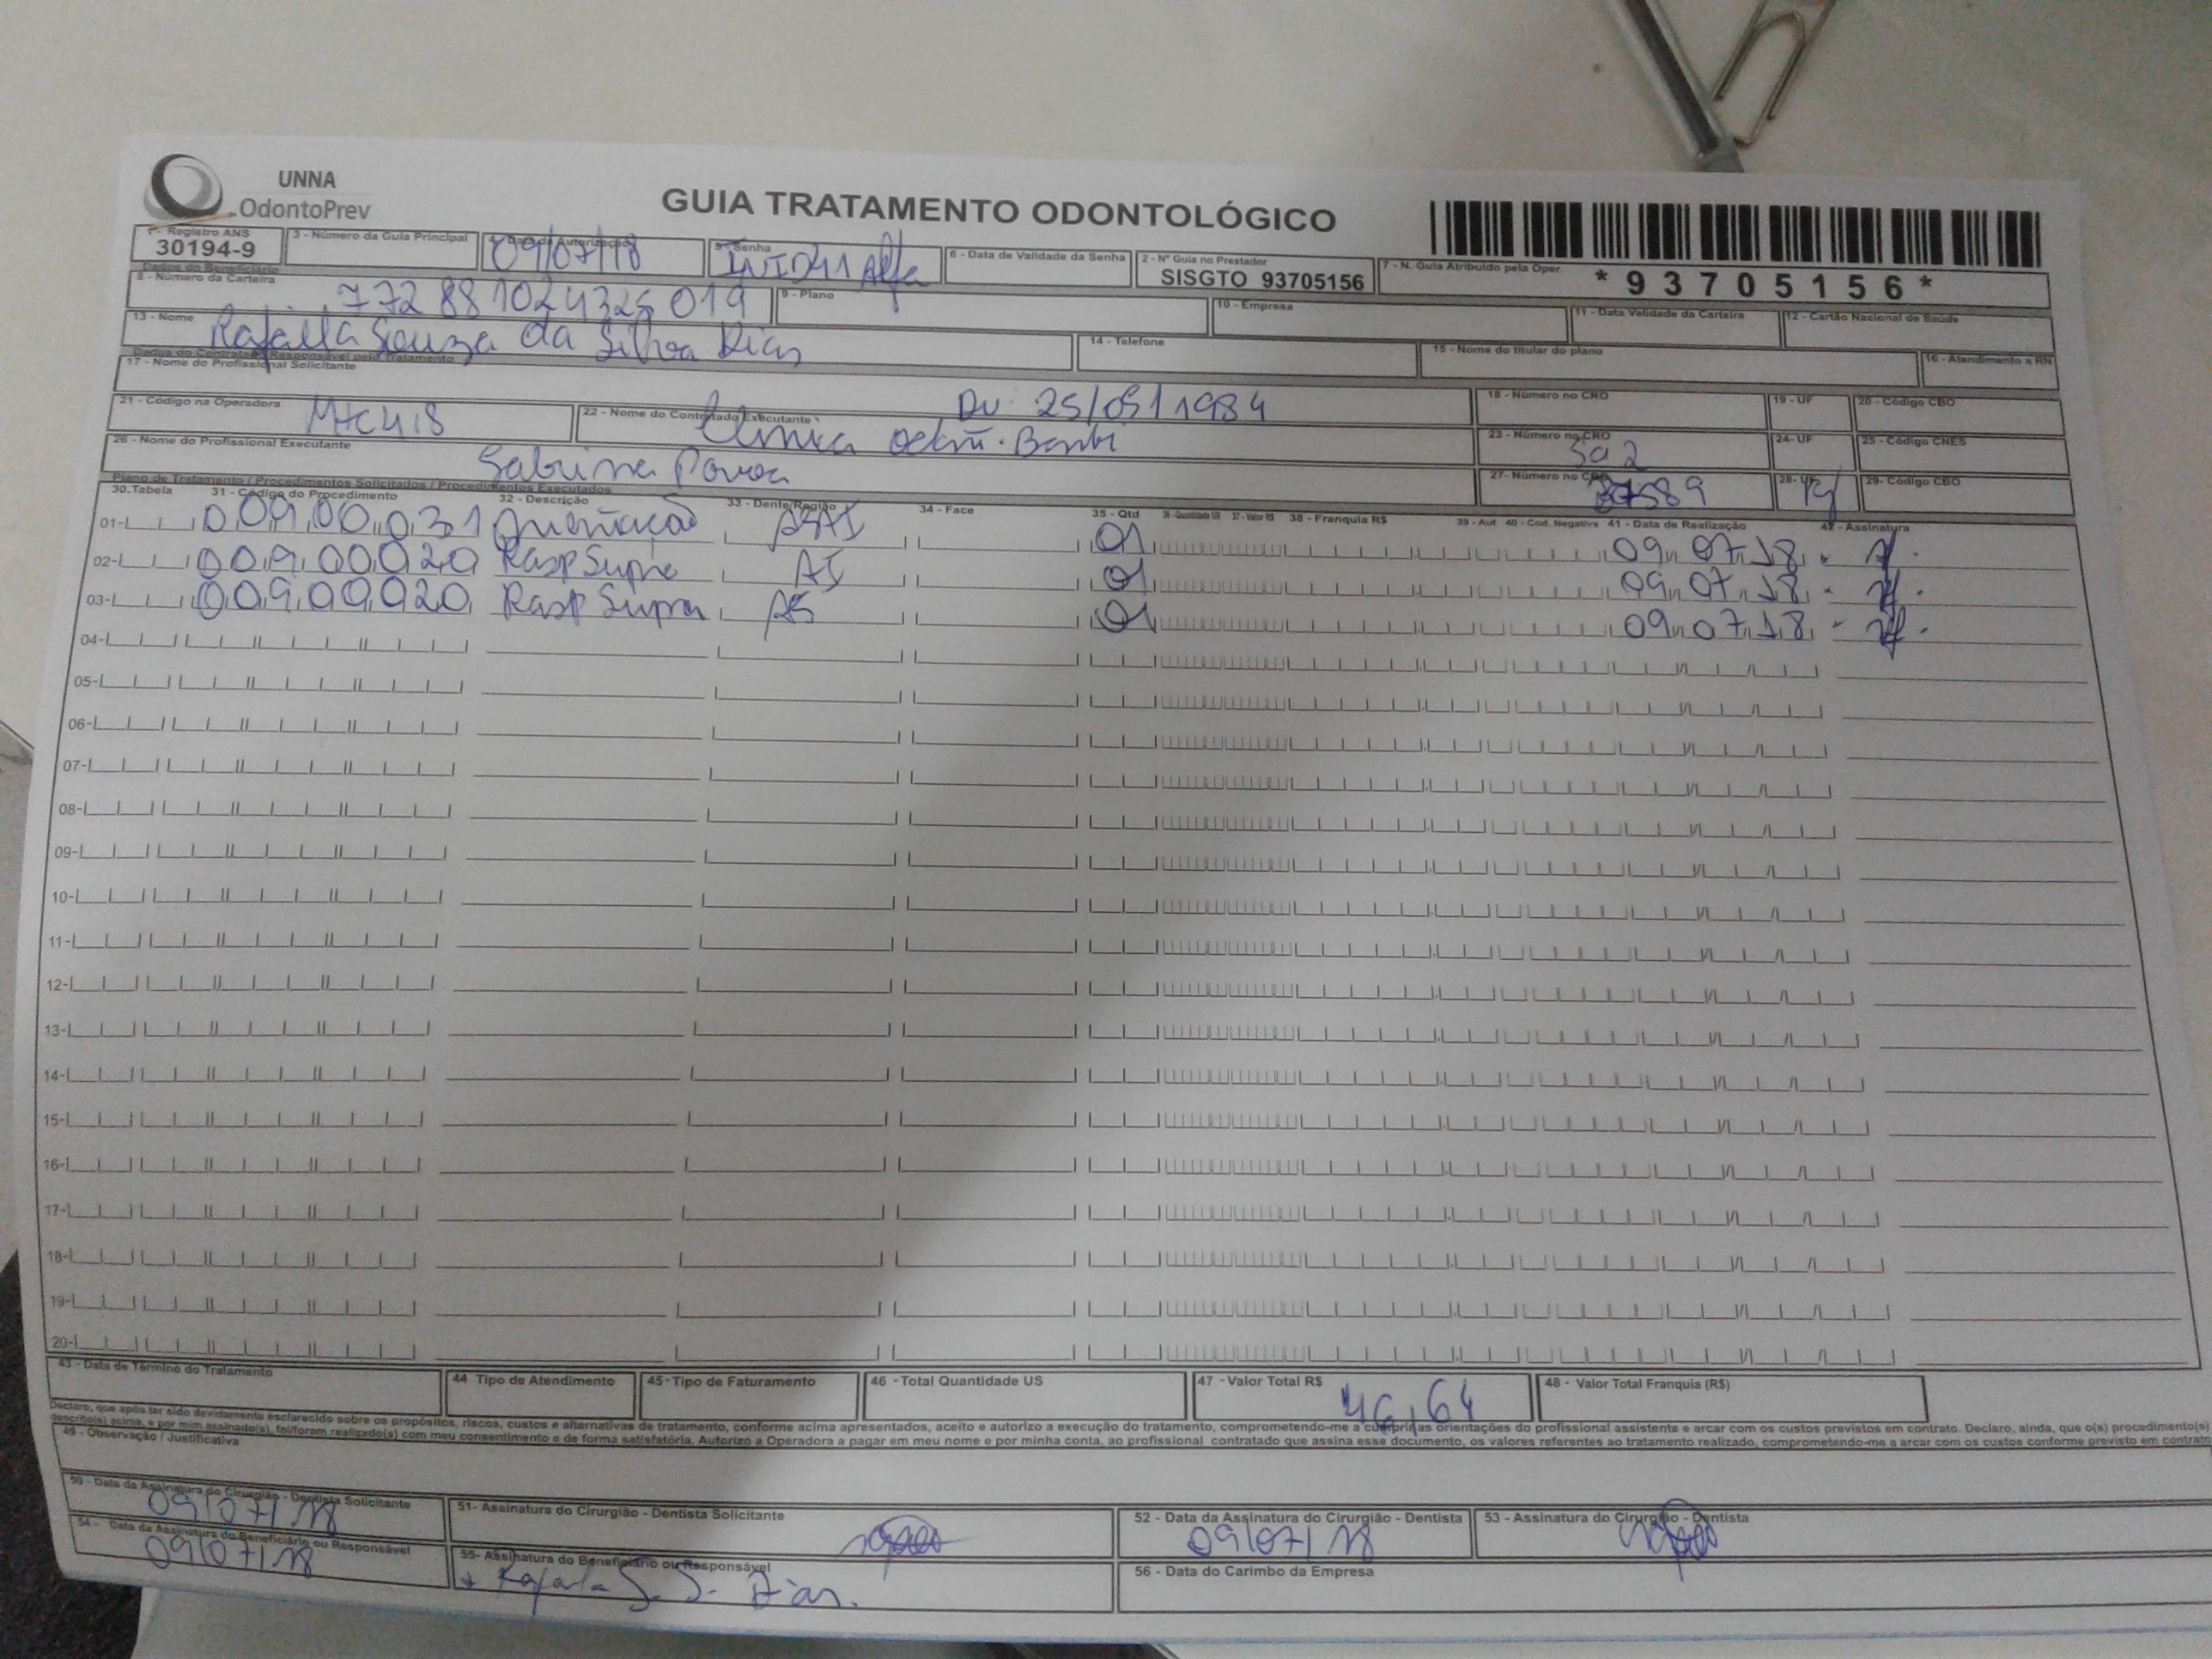 UNNA
OdontoPrev
GUIA TRATAMENTO ODONTOLÓGICO
1 - Registro ANS
30194-9
3 - Número da Guia Principal
09/07/18
5 - Senha
6 - Data de Validade da Senha
2 - Nº Guia no Prestador
SISGTO 93705156
7 - N. Guia Atribuído pela Oper.
*93705156*
Dados do Beneficiário
8 - Número da Carteira
9 - Plano
10 - Empresa
11 - Data Validade da Carteira
12 - Cartão Nacional de Saúde
13 - Nome
Souza da Silva Dias
14 - Telefone
15 - Nome do titular do plano
16 - Atendimento a RN
Dados do Contratado Responsável pelo Tratamento
17 - Nome do Profissional Solicitante
18 - Número no CRO
19 - UF
20 - Código CBO
21 - Código na Operadora
22 - Nome do Contratado Executante
23 - Número no CRO
24- UF
25 - Código CNES
26 - Nome do Profissional Executante
Sabrina
27- Número no CRO
28- UF
29- Código CBO
Plano de Tratamento / Procedimentos Solicitados / Procedimentos Executados
30.Tabela 31 - Código do Procedimento 32 - Descrição 33 - Dente/Região 34 - Face 35 - Qtd 36 - Quantidade US 37 - Valor R$ 38 - Franquia R$ 39 - Aut 40 - Cod. Negativa 41 - Data de Realização 42 - Assinatura
01- 00900031 01 09 07 18
02- 00900020 Rasp Supra AI 01 09 07 18
03- 00900020 Rasp Supra AS 01 09 07 18
04-
05-
06-
07-
08-
09-
10-
11-
12-
13-
14-
15-
16-
17-
18-
19-
20-
43 - Data de Término do Tratamento
44 Tipo de Atendimento
45 - Tipo de Faturamento
46 - Total Quantidade US
47 - Valor Total R$
46,64
48 - Valor Total Franquia (R$)
Declaro, que após ter sido devidamente esclarecido sobre os propósitos, riscos, custos e alternativas de tratamento, conforme acima apresentados, aceito e autorizo a execução do tratamento, comprometendo-me a cumprir as orientações do profissional assistente e arcar com os custos previstos em contrato. Declaro, ainda, que o(s) procedimento(s)
descrito(s) acima, e por mim assinado(s), foi/foram realizado(s) com meu consentimento e de forma satisfatória. Autorizo a Operadora a pagar em meu nome e por minha conta, ao profissional contratado que assina esse documento, os valores referentes ao tratamento realizado, comprometendo-me a arcar com os custos conforme previsto em contrato
49 - Observação / Justificativa
50 - Data da Assinatura do Cirurgião - Dentista Solicitante
09/07/18
51- Assinatura do Cirurgião - Dentista Solicitante
52 - Data da Assinatura do Cirurgião - Dentista
09/07/18
53 - Assinatura do Cirurgião - Dentista
54 - Data da Assinatura do Beneficiário ou Responsável
09/07/18
55- Assinatura do Beneficiário ou Responsável
S. S. Dias.
56 - Data do Carimbo da Empresa